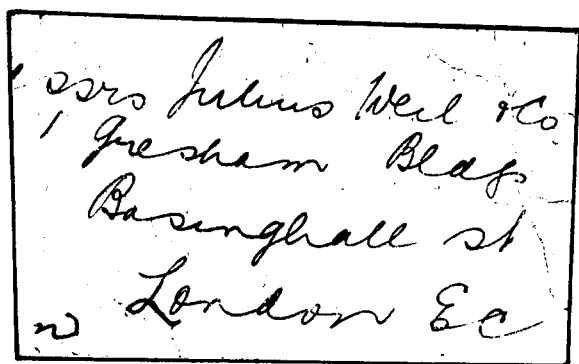 ssrs Julius Weil & Co
1 Gresham Bldgs
Basinghall st
London EC